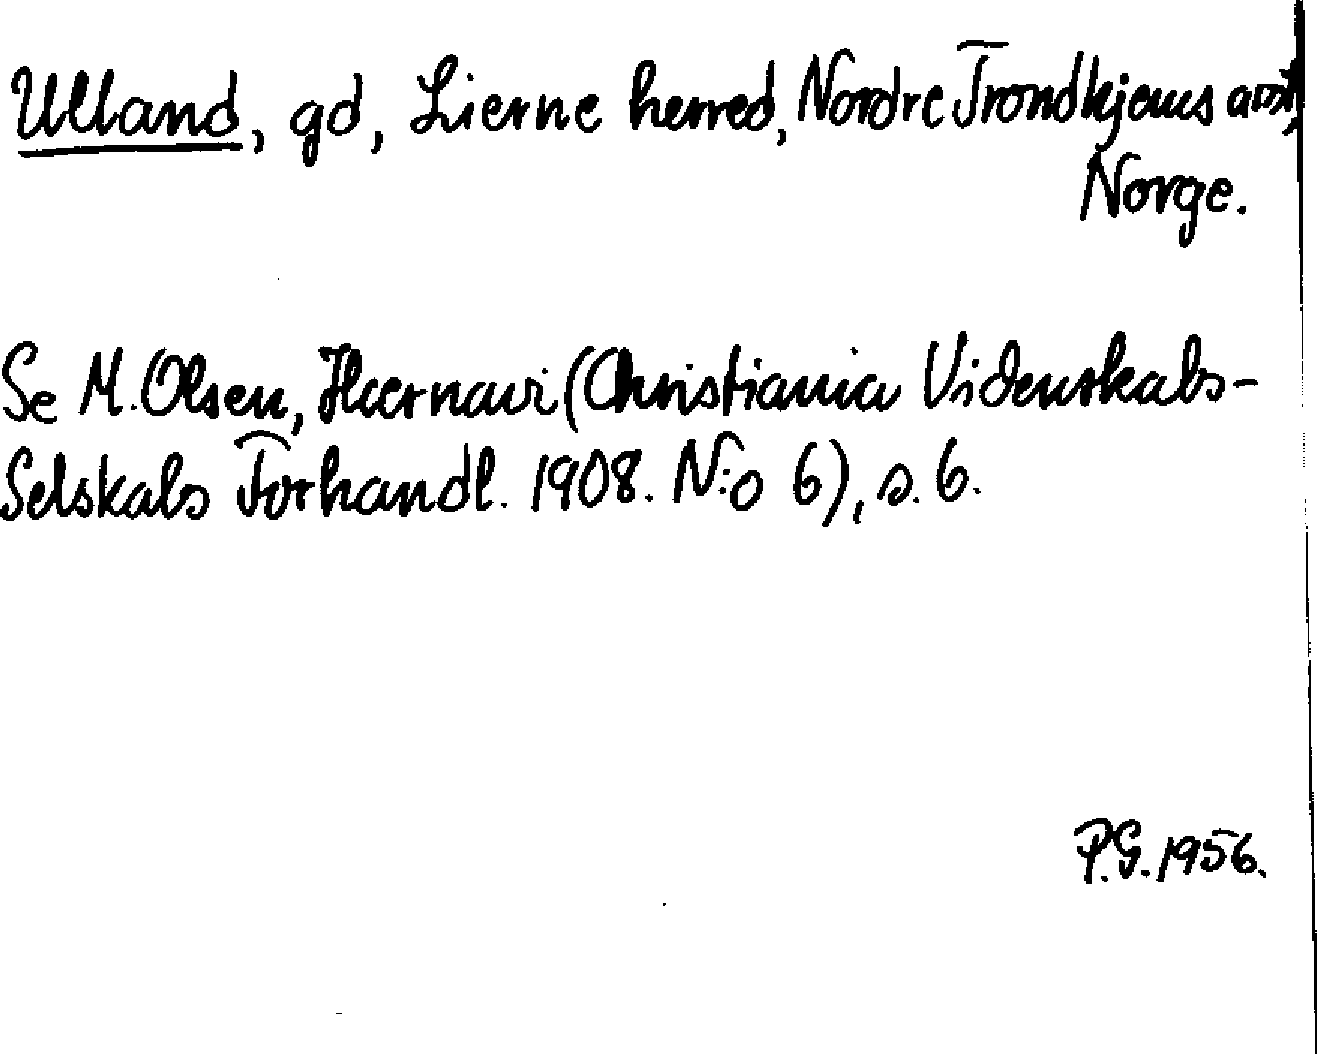 Ulland, gd, Lierne herred, Nordre Trondhjems amt,
Norge.
Se M. Olsen, Hærnavi (Christiania Videnskabs-
Selskabs Forhandl. 1908. N:o 6), s. 6.
P.G. 1956.